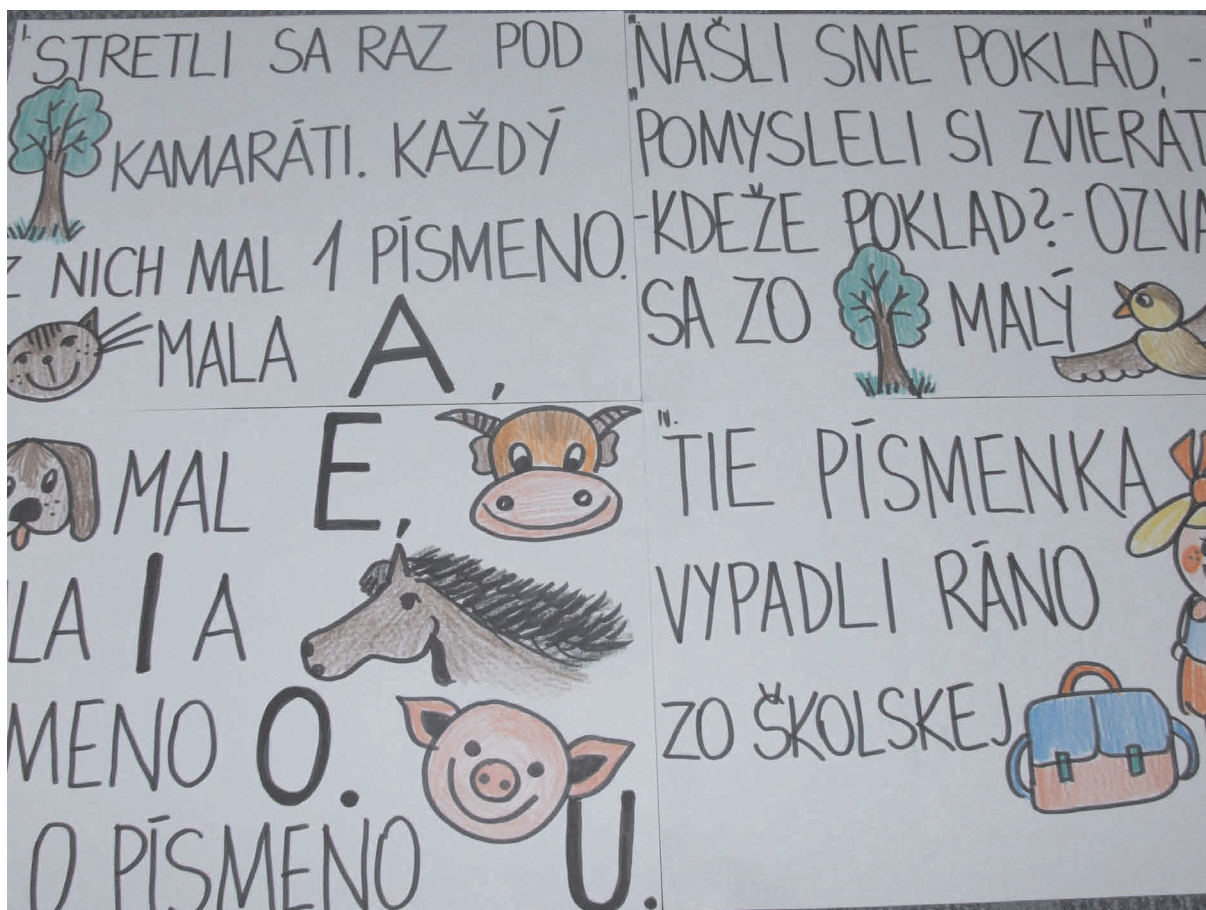 I.
STRETLI SA RAZ POD
KAMARÁTI. KAŽDÝ
Z NICH MAL 1 PÍSMENO.
MALA A,
II.
MAL E,
LA I A
MENO O.
O PÍSMENO U.
"NAŠLI SME POKLAD", -
POMYSLELI SI ZVIERÁT
-KDEŽE POKLAD?- OZVA
SA ZO MALÝ
IV.
TIE PÍSMENKA
VYPADLI RÁNO
ZO ŠKOLSKEJ